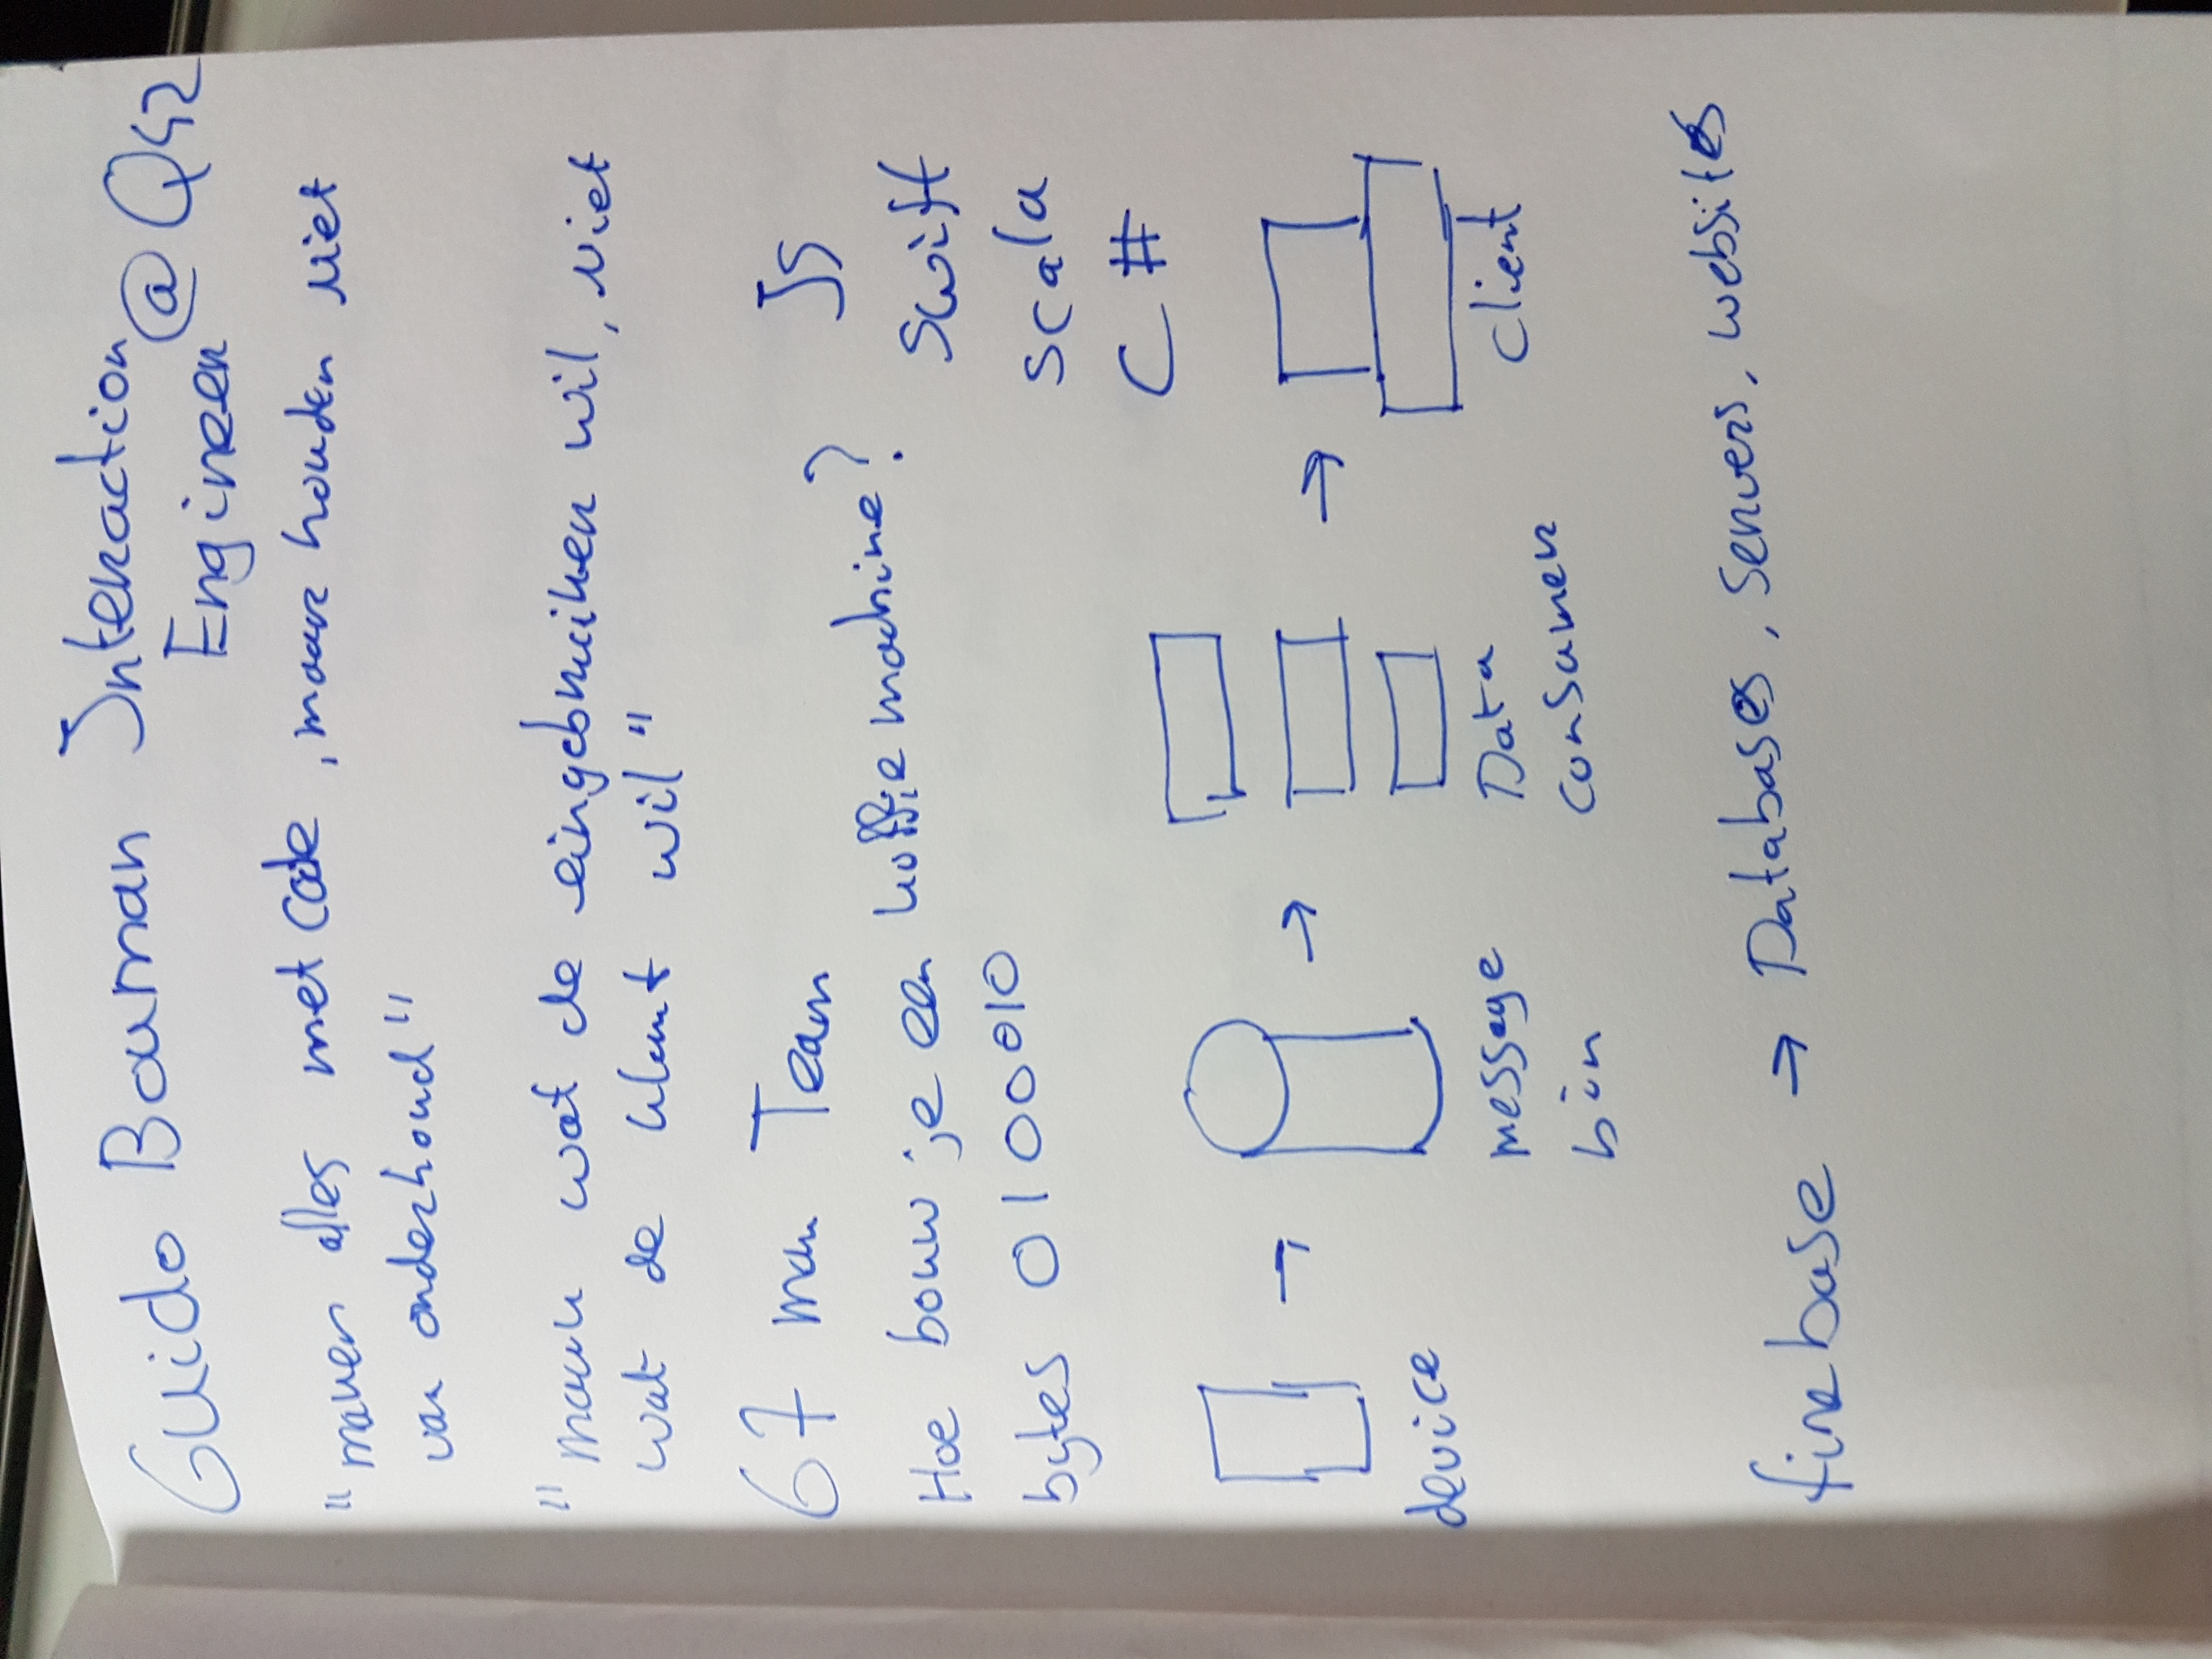 Guido Bouman Interaction
Engineer @ Q42
"maken alles met code, maar houden niet
van onderhoud"
"maak wat de eingebruiker wil, niet
wat de klant wil"
67 man Team
JS
Hoe bouw je een koffie machine?
Swift
bytes 0100010
scala
C #
device
message
bin
Data
consumer
client
firebase → Databases, servers, websites